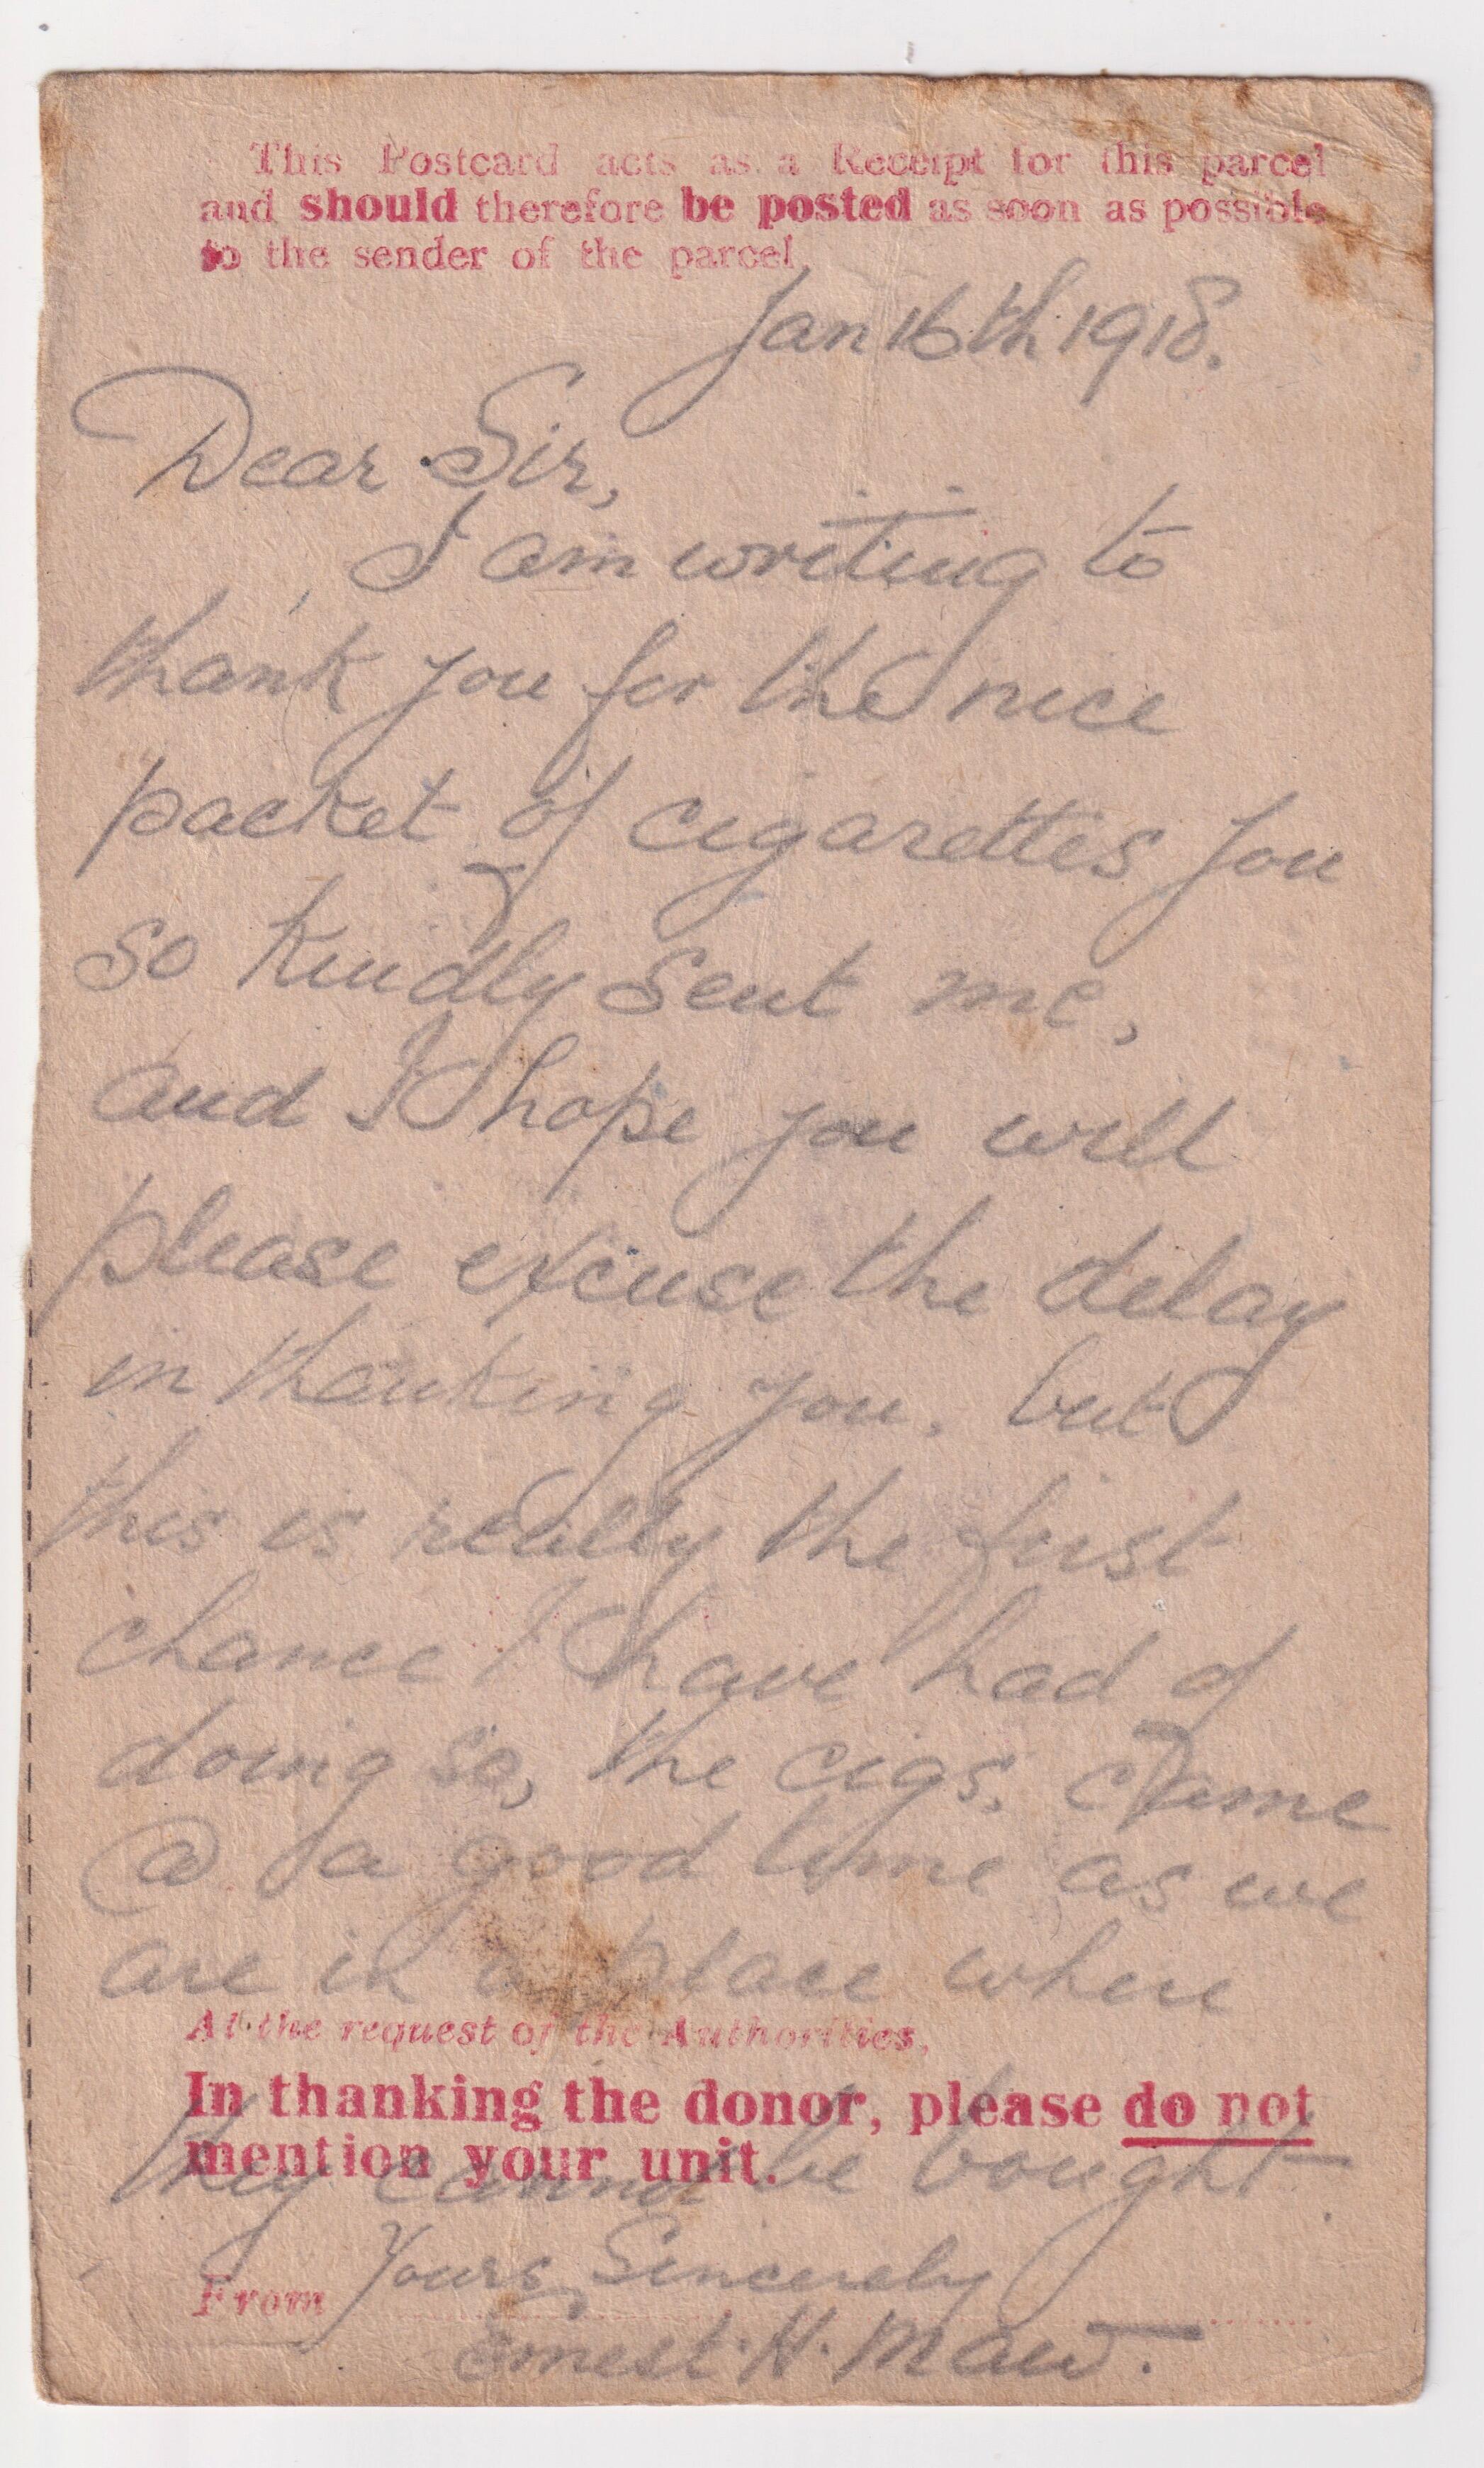 This Postcard acts as a Receipt for this parcel
and should therefore be posted as soon as possible
to the sender of the parcel.
Jan 16th 1918.
Dear Sir,
I am writing to
thank you for the nice
packet of cigarettes you
so kindly sent me,
and I hope you will
please excuse the delay
in thanking you. but
this is really the first
chance I have had of
doing so, the cigs. came
@ a good time as we
are in a place where
At the request of the Authorities,
In thanking the donor, please do not
mention your unit.
they cannot be bought.
Yours Sincerely
From
Ernest. H. Maw.